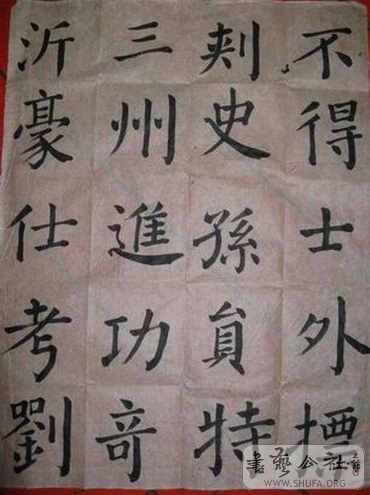 不得士外
刾史孫貟特
三州進功竒
沂豪仕考劉
書藝公社
WWW.SHUFA.ORG